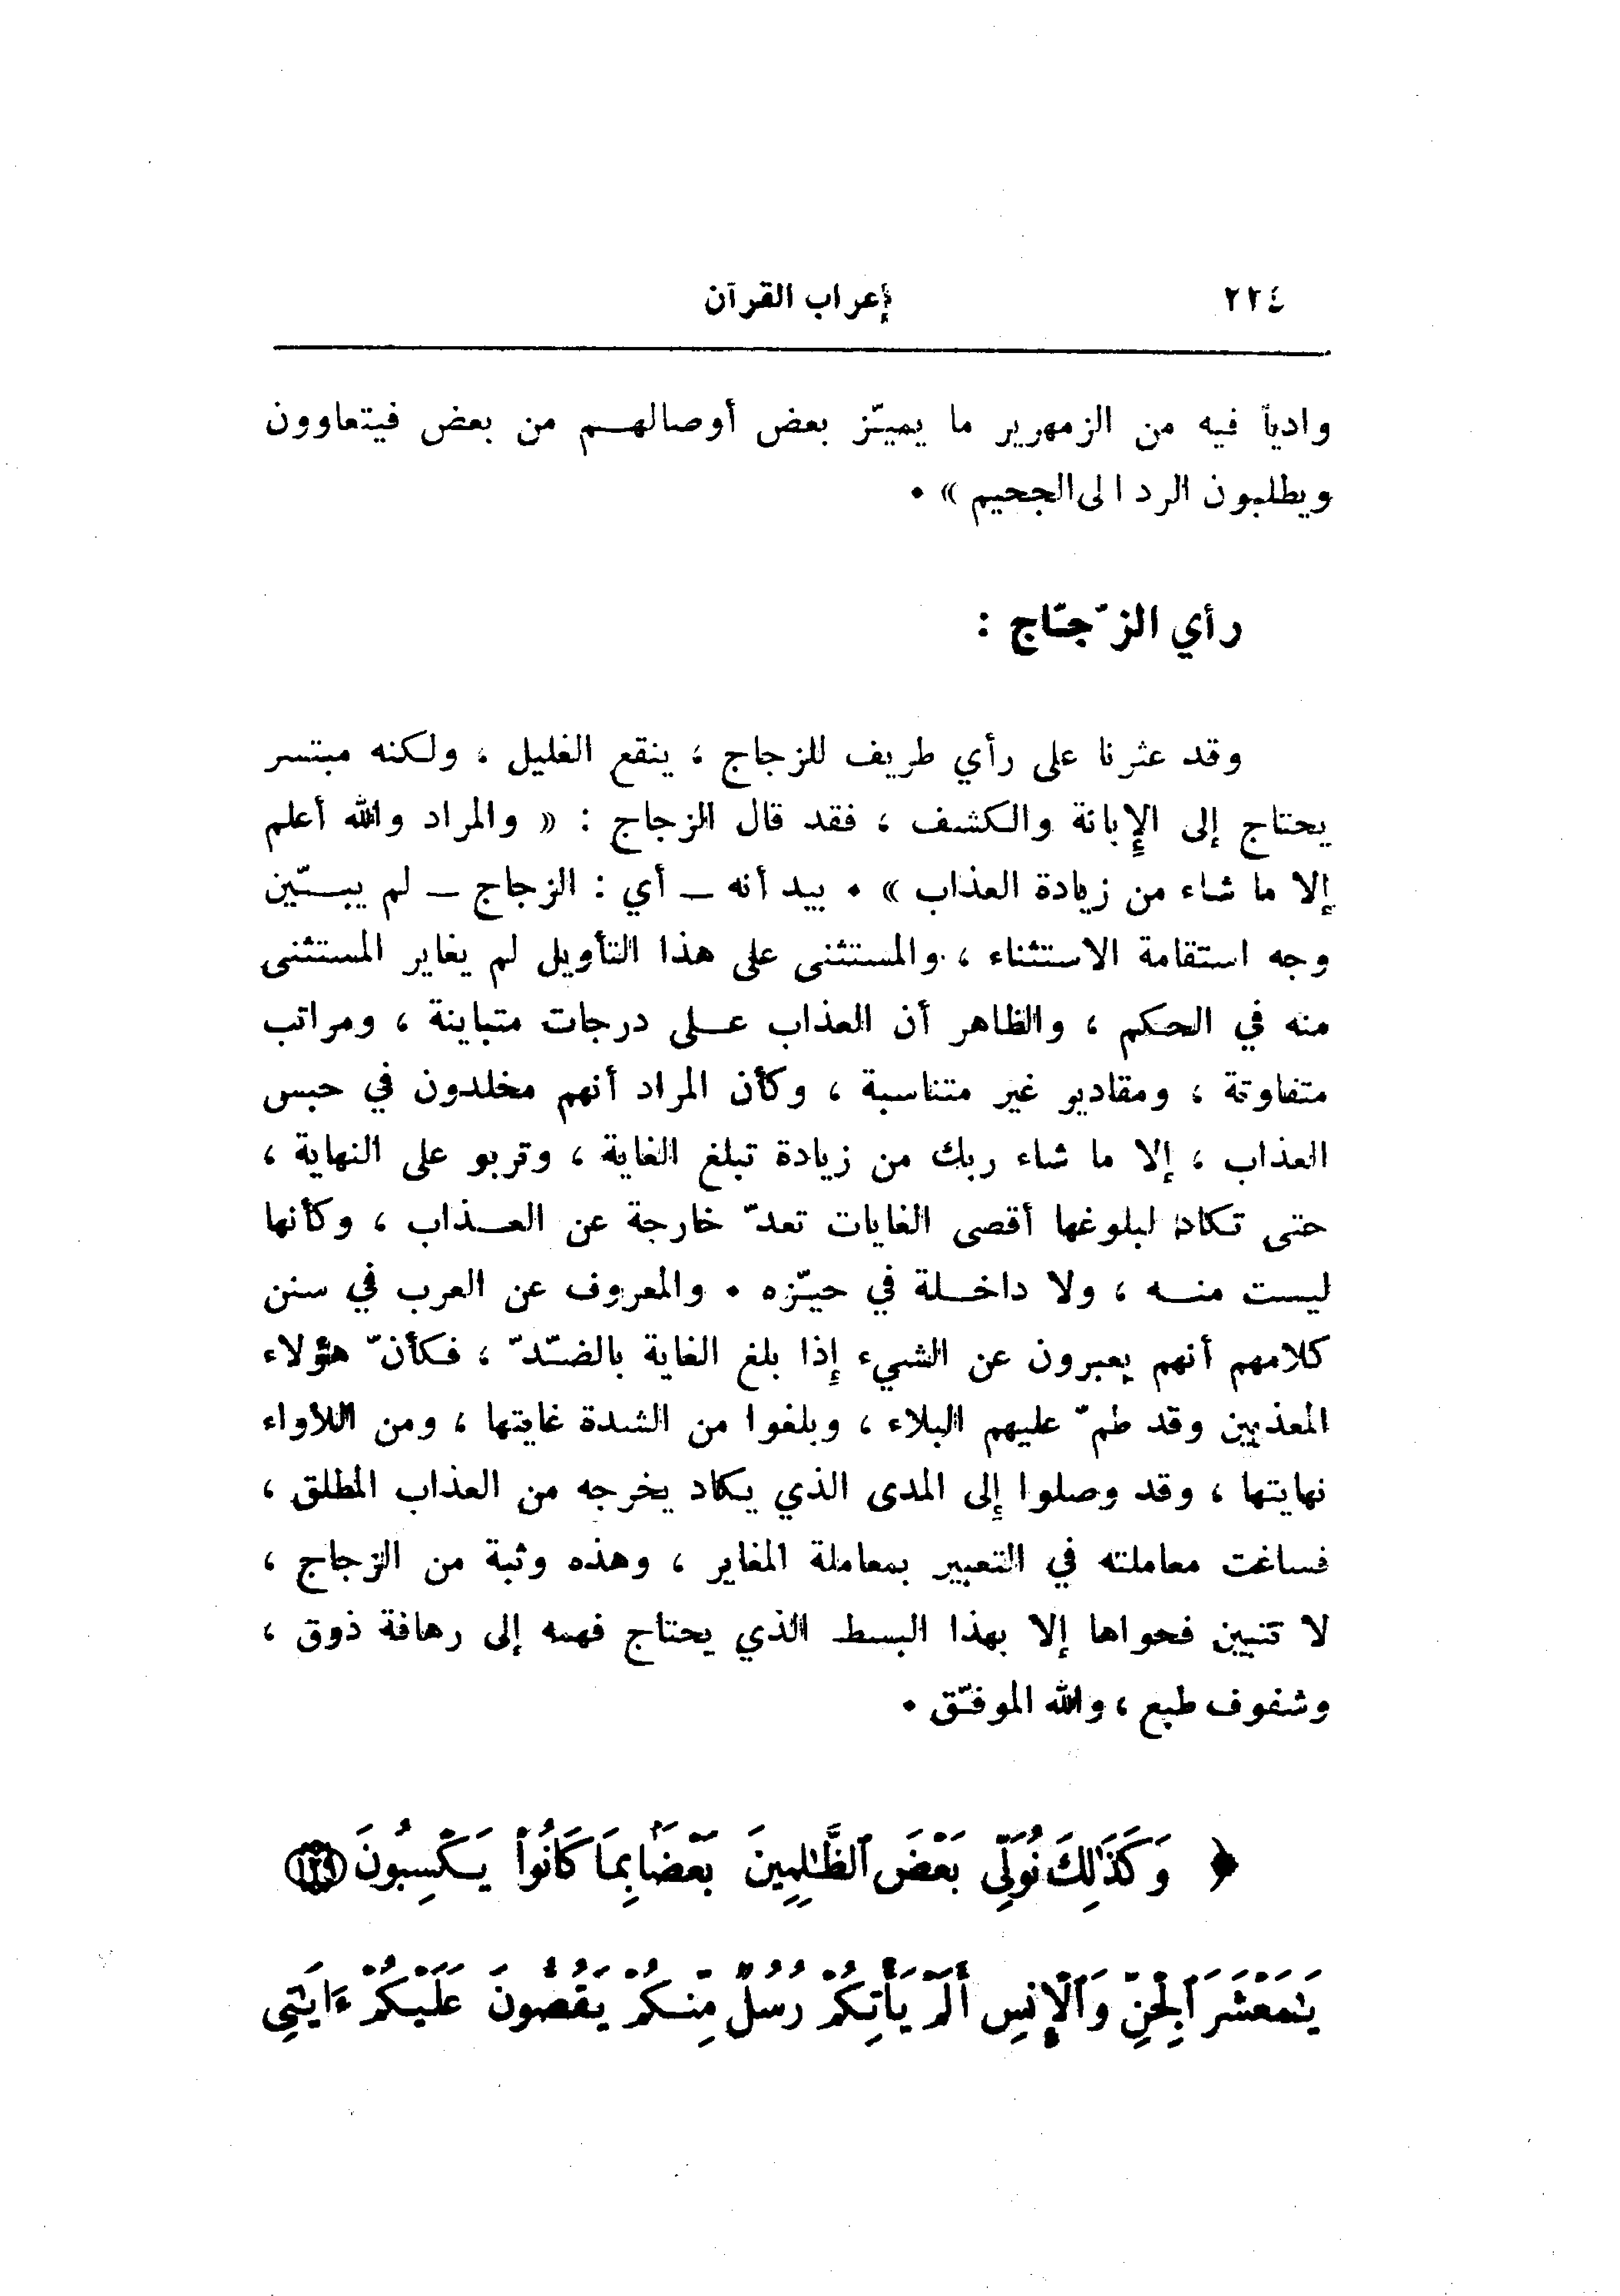 ٢٢٤ إعراب القرآن
وادياً فيه من الزمهرير ما يميّز بعض أوصالهم من بعض فيتعاوون
ويطلبون الرد الى الجحيم » ٠
رأي الزّجّاج :
وقد عثرنا على رأي طريف للزجاج ، ينقع الغليل ، ولكنه مبتسر
يحتاج إلى الإبانة والكشف ، فقد قال الزجاج : « والمراد والله أعلم
إلا ما شاء من زيادة العذاب » ٠ بيد أنه ــ أي : الزجاج ــ لم يبيّن
وجه استقامة الاستثناء ، والمستثنى على هذا التأويل لم يغاير المستثنى
منه في الحكم ، والظاهر أن العذاب على درجات متباينة ، ومراتب
متفاوتة ، ومقادير غير متناسبة ، وكأن المراد أنهم مخلدون في حبس
العذاب ، إلا ما شاء ربك من زيادة تبلغ الغاية ، وتربو على النهاية ،
حتى تكاد لبلوغها أقصى الغايات تعدّ خارجة عن العذاب ، وكأنها
ليست منه ، ولا داخلة في حيّزه ٠ والمعروف عن العرب في سنن
كلامهم أنهم يعبرون عن الشيء إذا بلغ الغاية بالضّدّ ، فكأنّ هؤلاء
المعذبين وقد طمّ عليهم البلاء ، وبلغوا من الشدة غايتها ، ومن اللأواء
نهايتها ، وقد وصلوا إلى المدى الذي يكاد يخرجه من العذاب المطلق ،
فساغت معاملته في التعبير بمعاملة المغاير ، وهذه وثبة من الزجاج ،
لا تتبين فحواها إلا بهذا البسط الذي يحتاج فهمه إلى رهافة ذوق ،
وشفوف طبع ، والله الموفّق ٠
﴿ وَكَذَٰلِكَ نُوَلِّي بَعْضَ ٱلظَّـٰلِمِينَ بَعْضَۢا بِمَا كَانُوا۟ يَكْسِبُونَ ١٢٩
يَـٰمَعْشَرَ ٱلْجِنِّ وَٱلْإِنسِ أَلَمْ يَأْتِكُمْ رُسُلٌ مِّنكُمْ يَقُصُّونَ عَلَيْكُمْ ءَايَـٰتِي